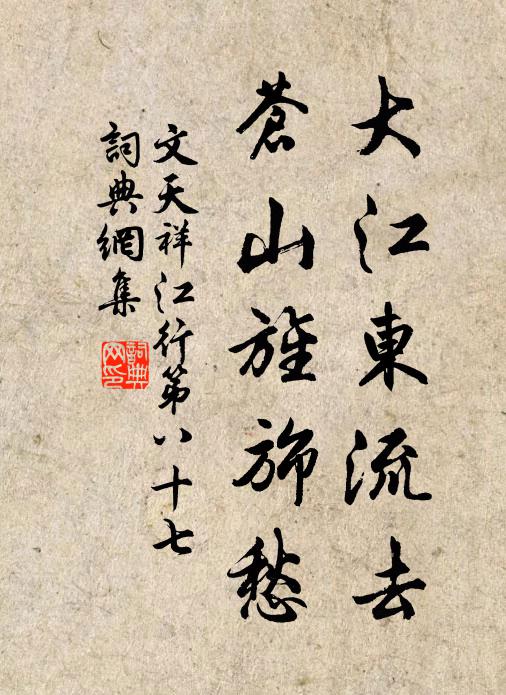 大江東流去
蒼山旌旆愁
文天祥江行第八十七
詞典網集
詞典
网印